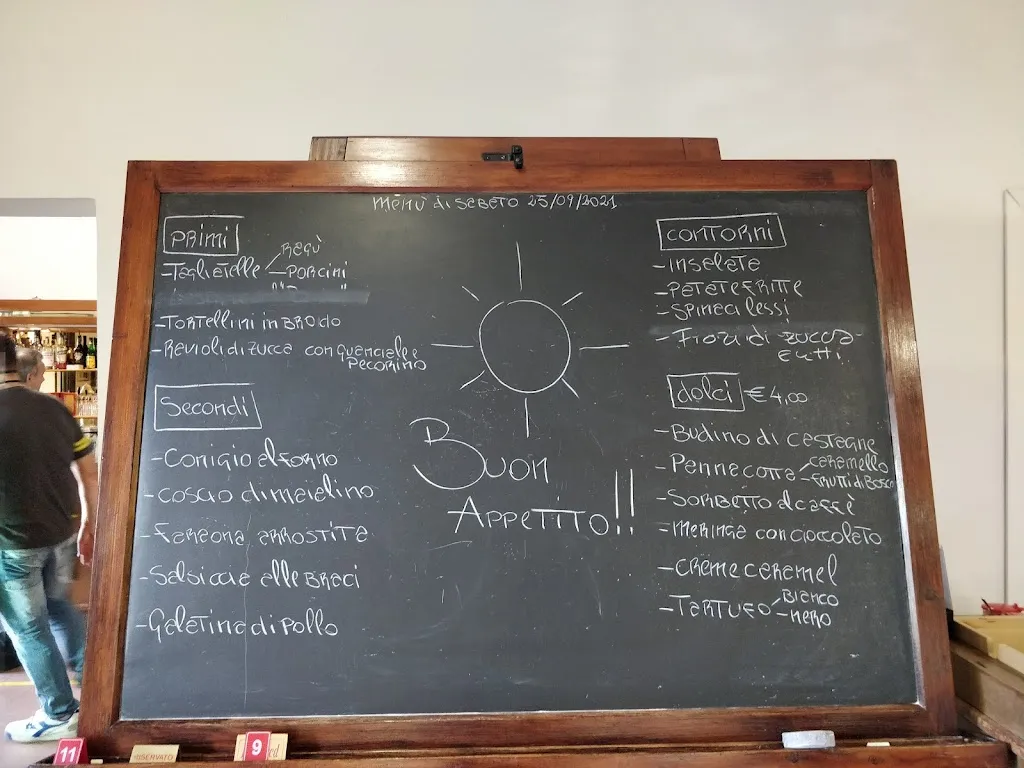 Menù di sabato 25/09/2021
Primi
- Tagliatelle Ragù
- Porcini
- Tortellini in Brodo
- Ravioli di zucca con guanciale e
Pecorino
Secondi
- Coniglio al forno
- Coscio di maialino
- Faraona arrostita
- Salsicce alle Braci
- Galatina di Pollo
Buon
Appetito!!
Contorni
- Insalata
- Patate fritte
- Spinaci lessi
- Fiori di zucca
dolci €4,00
- Budino di castagne
- Panna cotta caramello
- Frutti di Bosco
- Sorbetto al caffè
- Meringa con cioccolato
- Creme caramel
- Tartufo Bianco
- nero
11
RISERVATO
9